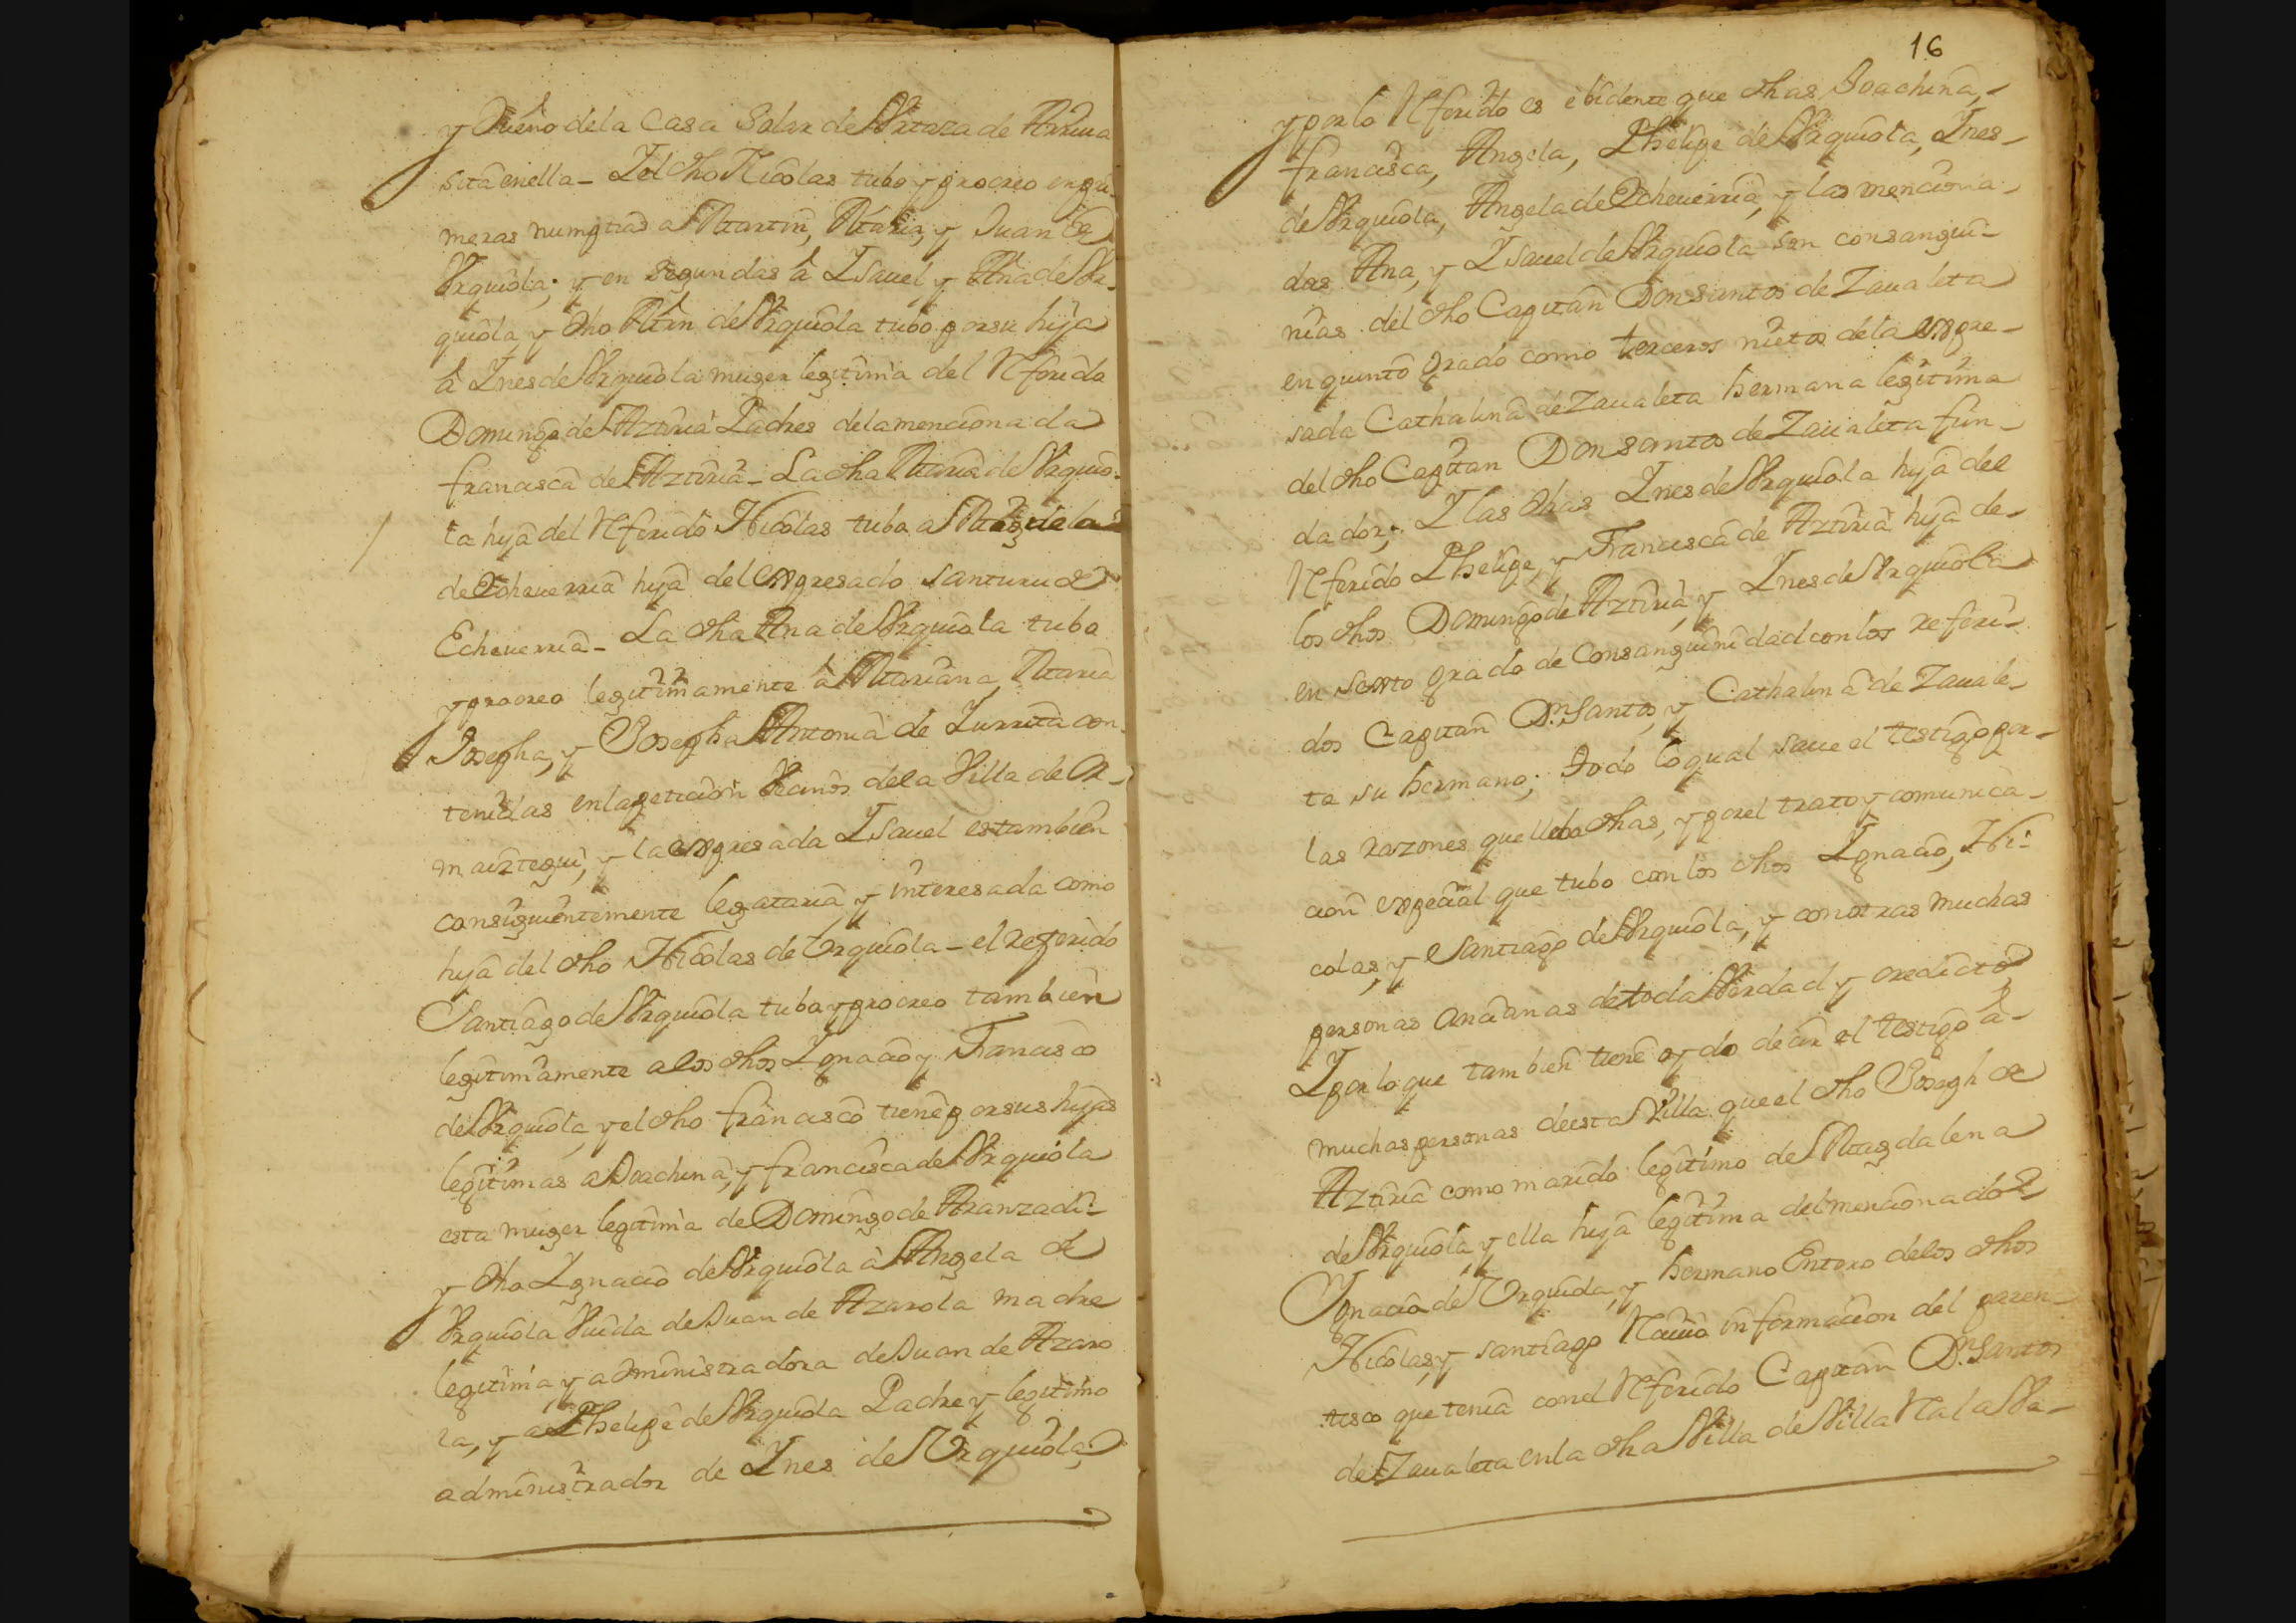 y Dueño dela Casa Solar de Vrtaza de Arriua
sita en ella - Y el dho Nicolas tubo y procreo en pri-
meras numptias a Martin, Maria, y Juan de
Vrquiola; y en segundas â Ysauel y Ana de Vr-
quiola, y dho Mrn de Vrquiola tubo por su hija
â Ynes de Vrquiola muger legitima del Rferido
Domingo de Aztiria Padres dela mencionada
francisca de Aztiria - La dha Maria de Vrquio-
la hija del Rferido Nicolas tubo a Magdala
de Echeuerria hija del expresado santuru de
Echeuerria - La dha Ana de Vrquiola tubo
y procreo legitimamente â Mariana, Maria
Josepha, y Josepha Antonia de Zurrita con-
tenidas en la peticion Vecinos dela Villa de Or-
maiztegui, y la expresada Ysauel es tambien
consiguientemente legataria y interesada como
hija del dho Nicolas de Vrquiola - el referido
Santiago de Vrquiola tubo y procreo tambien
legitimamente a los dhos Ygnacio y Francisco
de Vrquiola, y el dho francisco tiene por sus hijas
legitimas a Joachina, y francisca de Vrquiola
esta muger legitima de Domingo de Aranzadi-
y dho Ygnacio de Vrquiola â Angela de
Vrquiola Viuda de Juan de Azarola madre
legitima y administradora de Juan de Azaro
la, y a Phelipe de Vrquiola Padre y legitimo
administrador de Ynes de Vrquiola;
16
y por lo Rferido es ebidente que dhas Joachina,
francisca, Angela, Phelipe de Vrquiola, Ynes
de Vrquiola, Angela de Echeuerria, y las menciona-
das Ana, y Ysauel de Vrquiola son consangui-
nias del dho Capitan Don Santos de Zaualeta
en quinto grado como terceros nietos dela expre-
sada Cathalina de Zaualeta hermana legitima
del dho Capitan Don Santos de Zaualeta fun-
dador; Y las dhas Ynes de Vrquiola hija del
Rferido Phelipe, y Francisca de Aztiria hija de
los dhos Domingo de Aztiria, y Ynes de Vrquiola
en sexto grado de Consanguinidad con los referi-
dos Capitan Dn Santos, y Cathalina de Zauale-
ta su hermano; todo lo qual saue el testigo por
las razones que lleba dhas, y por el trato y comunica-
cion expecial que tubo con los dhos Ygnacio, Ni-
colas, y Santiago de Vrquiola, y con otras muchas
personas ancianas de toda Verdad y credicto
Y por lo que tambien tiene oydo decir el testigo â
muchas personas de esta Villa que el dho Joseph de
Aztiria como marido legitimo de Magdalena
de Vrquiola, y ella hija legitima del mencionado
Ygnacio de Vrquiola, y hermano Entero delos dhos
Nicolas, y santiago Rciuio informacion del paren-
tesco que tenia con el Rferido Capitan Dn Santos
de Zaualeta en la dha Villa de Villa Rala Va-